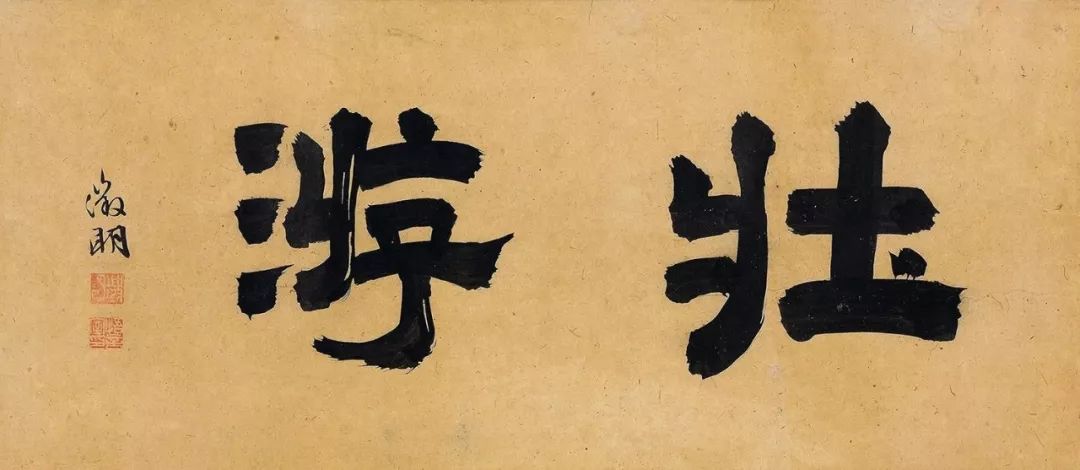 壮游
徵明